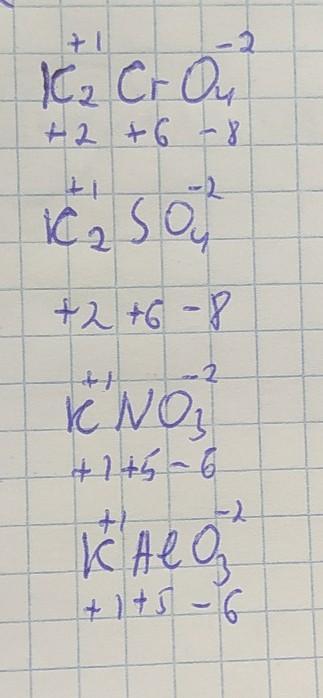 +1 -2
K₂CrO₄
+2 +6 -8
+1 -2
K₂SO₄
+2 +6 -8
+1 -2
KNO₃
+1+5-6
+1 -2
KAlO₃
+1+5-6